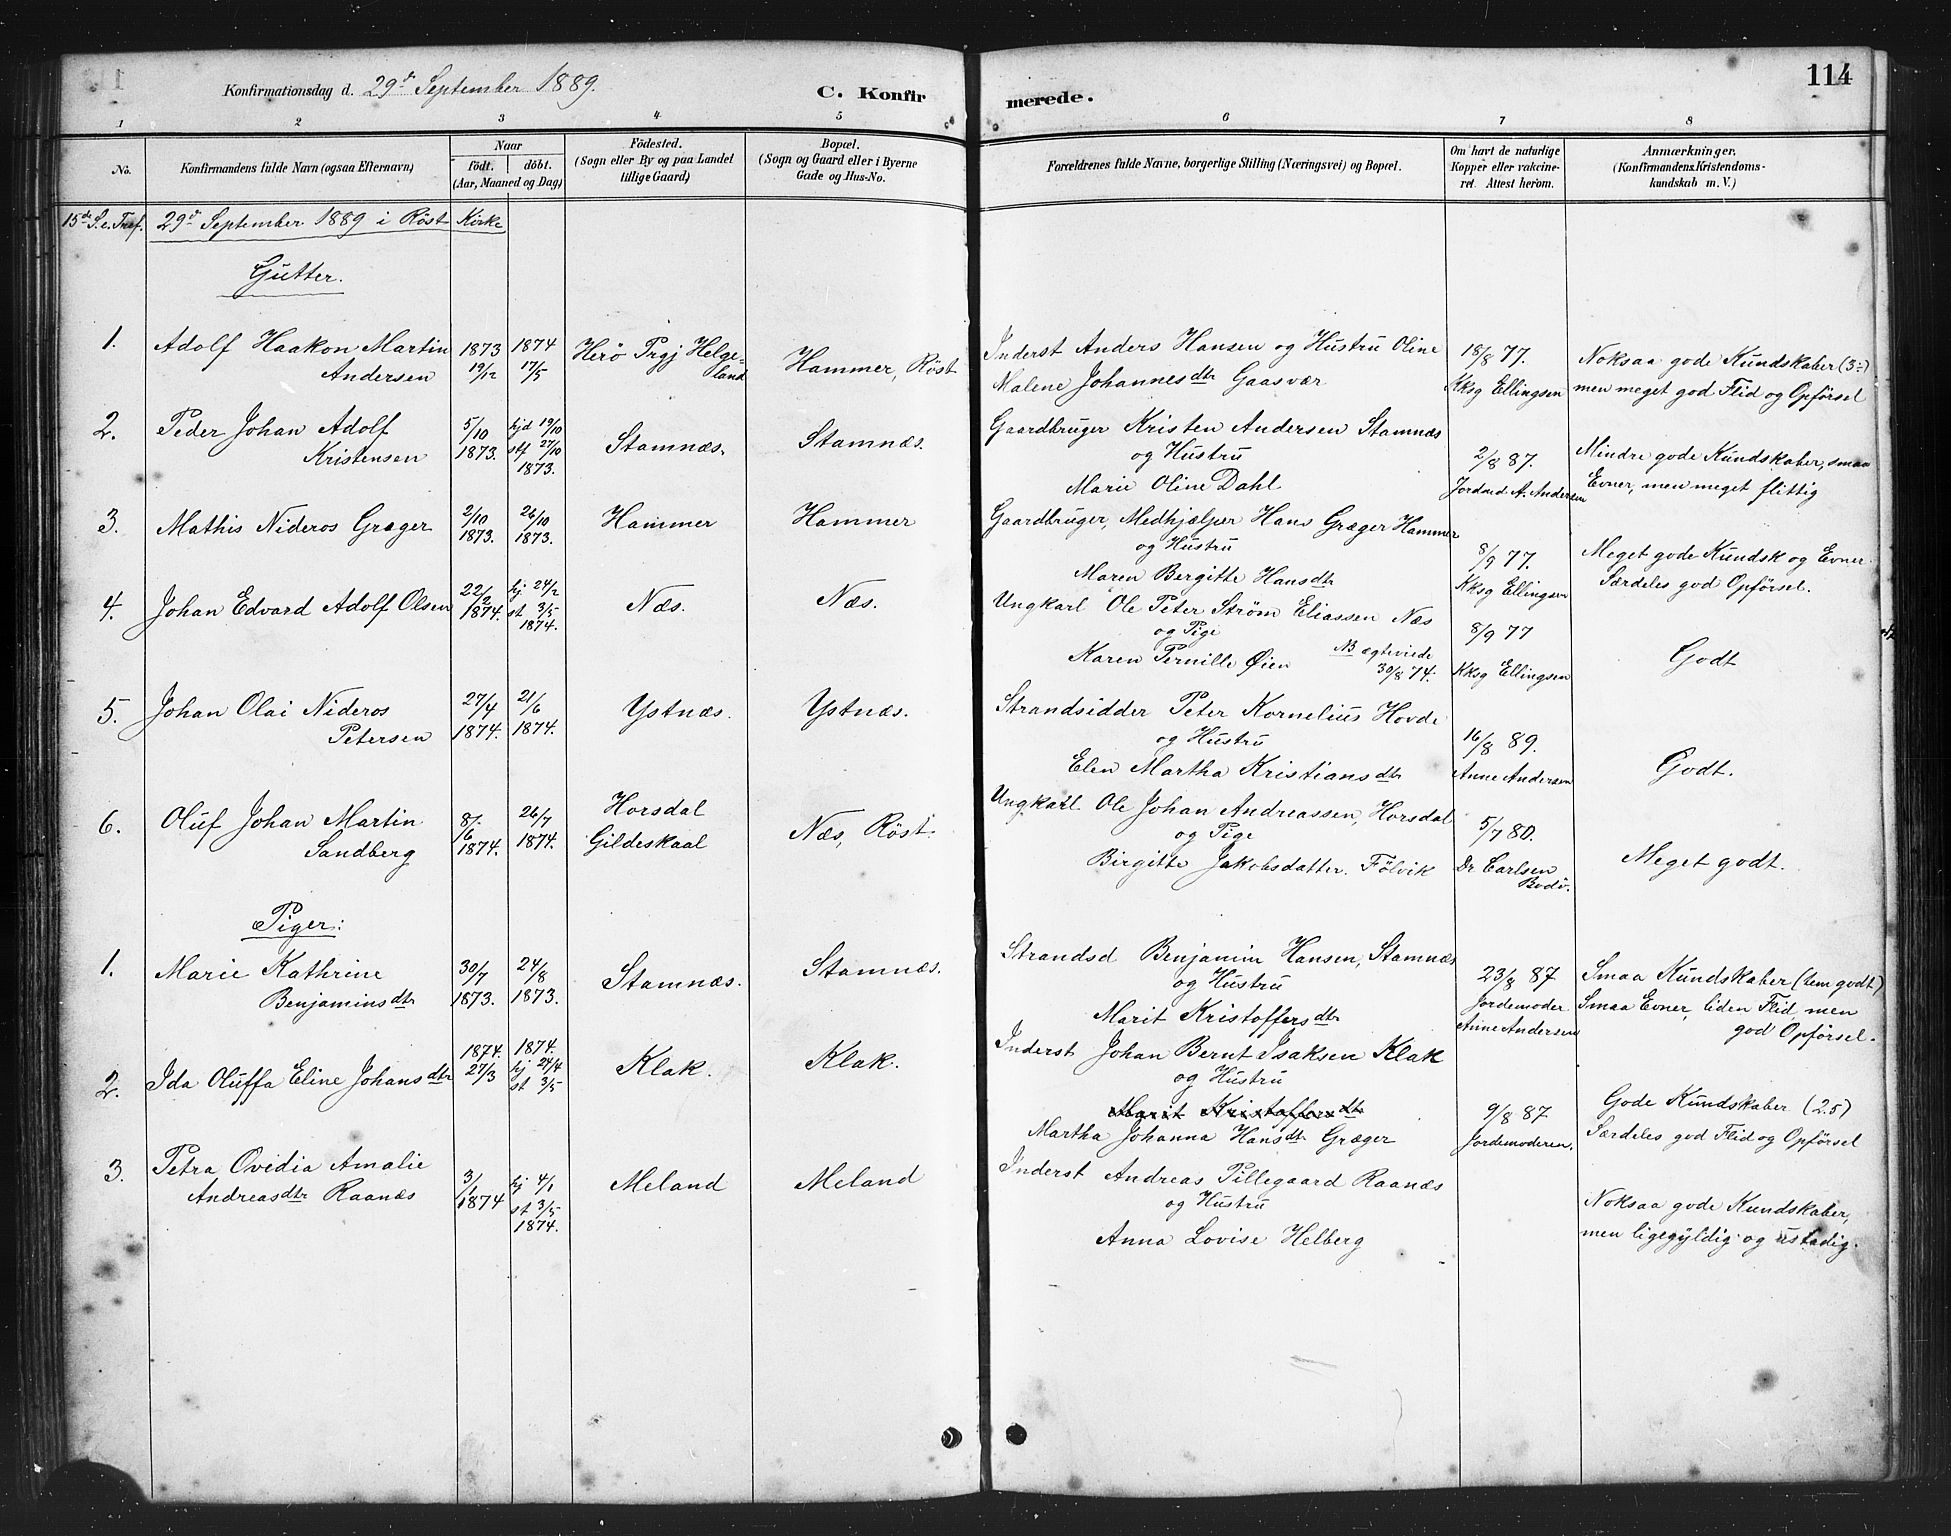 114
Konfirmationsdag d. 29de September 1889.
C. Konfirmerede.
1 2 3 4 5 6 7 8
No.
Konfirmandens fulde Navn (ogsaa Efternavn)
Naar
födt. döbt.
(Aar, Maaned og Dag)
Födested.
(Sogn eller By og paa Landet
tillige Gaard)
Bopæl.
(Sogn og Gaard eller i Byerne
Gade og Hus-No.
Forældrenes fulde Navne, borgerlige Stilling (Næringsvei) og Bopæl.
Om havt de naturlige
Kopper eller vakcine-
ret. Attest herom.
Anmærkninger.
(Konfirmandens Kristendoms-
kundskab m. V.)
15de S. e. Tref. 29de September 1889 i Röst Kirke
Gutter.
1. Adolf Haakon Martin
Andersen
1873
19/12
1874
17/5
Herö Prgj Helge-
land
Hammer, Röst
Inderst Anders Hansen og Hustru Oline
Malene Johannesdtr Gaasvær
18/8 77.
Kksg Ellingsen
Noksaa gode Kundskaber (3-)
men meget god Flid og Opförsel
2. Peder Johan Adolf
Kristensen
5/10
1873.
hjd 19/10
stf 27/10
1873.
Stamnæs.
Stamnæs.
Gaardbruger Kristen Andersen Stamnæs
og Hustru
Marie Oline Dahl
2/8 87.
Jordmd A. Andersen
Mindre gode Kundskaber, smaa
Evner, men meget flittig
3. Mathis Nideros Græger
2/10
1873.
26/10
1873.
Hammer
Hammer
Gaardbruger, Medhjælper Hans Græger Hammer
og Hustru
Maren Bergitte Hansdtr
8/9 77.
Kksg Ellingsen
Meget gode Kundsk og Evner
Særdeles god Opförsel.
4. Johan Edvard Adolf Olsen
22/2
1874.
hj 24/2
st 3/5
1874.
Næs.
Næs.
Ungkarl Ole Peter Ström Eliassen Næs
og Pige
Karen Pernille Øien
NB ægteviede
30/8 74.
8/9 77
Kksg Ellingsen
Godt
5. Johan Olai Nideros
Petersen
27/4
1874.
21/6
1874.
Ystnæs.
Ystnæs.
Strandsidder Peter Kornelius Hovde
og Hustru
Elen Martha Kristiansdtr
16/8 89.
Anne Andersen
Godt.
6. Oluf Johan Martin
Sandberg
8/6
1874.
26/7
1874.
Horsdal
Gildeskaal
Næs, Röst.
Ungkarl Ole Johan Andreassen, Horsdal
og Pige
Birgitte Jakobsdatter. Fölvik
5/7 80.
Dr Carlsen
Bodö.
Meget godt.
Piger:
1. Marie Kathrine
Benjaminsdtr
30/7
1873.
24/8
1873.
Stamnæs.
Stamnæs.
Strandsd Benjamin Hansen, Stamnæs
og Hustru
Marit Kristoffersdtr
23/8 87.
Jordemoder
Anne Andersen
Smaa Kundskaber (tem godt)
Smaa Evner, liden Flid, men
god Opförsel.
2. Ida Oluffa Eline Johansdtr
1874.
27/3
1874.
hj 24/4
st 3/5
Klak.
Klak.
Inderst Johan Bernt Isaksen Klak
og Hustru
Marit Kristoffersdtr
Martha Johanna Hansdtr Græger
9/8 87.
Jordemoderen.
Gode Kundskaber (2.5)
Særdeles god Flid og Opförsel
3. Petra Ovidia Amalie
Andreasdtr Raanæs
3/1
1874
hj 4/1
st 3/5
1874.
Meland
Meland
Inderst Andreas Pillegaard Raanæs
og Hustru
Anna Lovise Helberg
Noksaa gode Kundskaber,
men ligegyldig og ustadig.